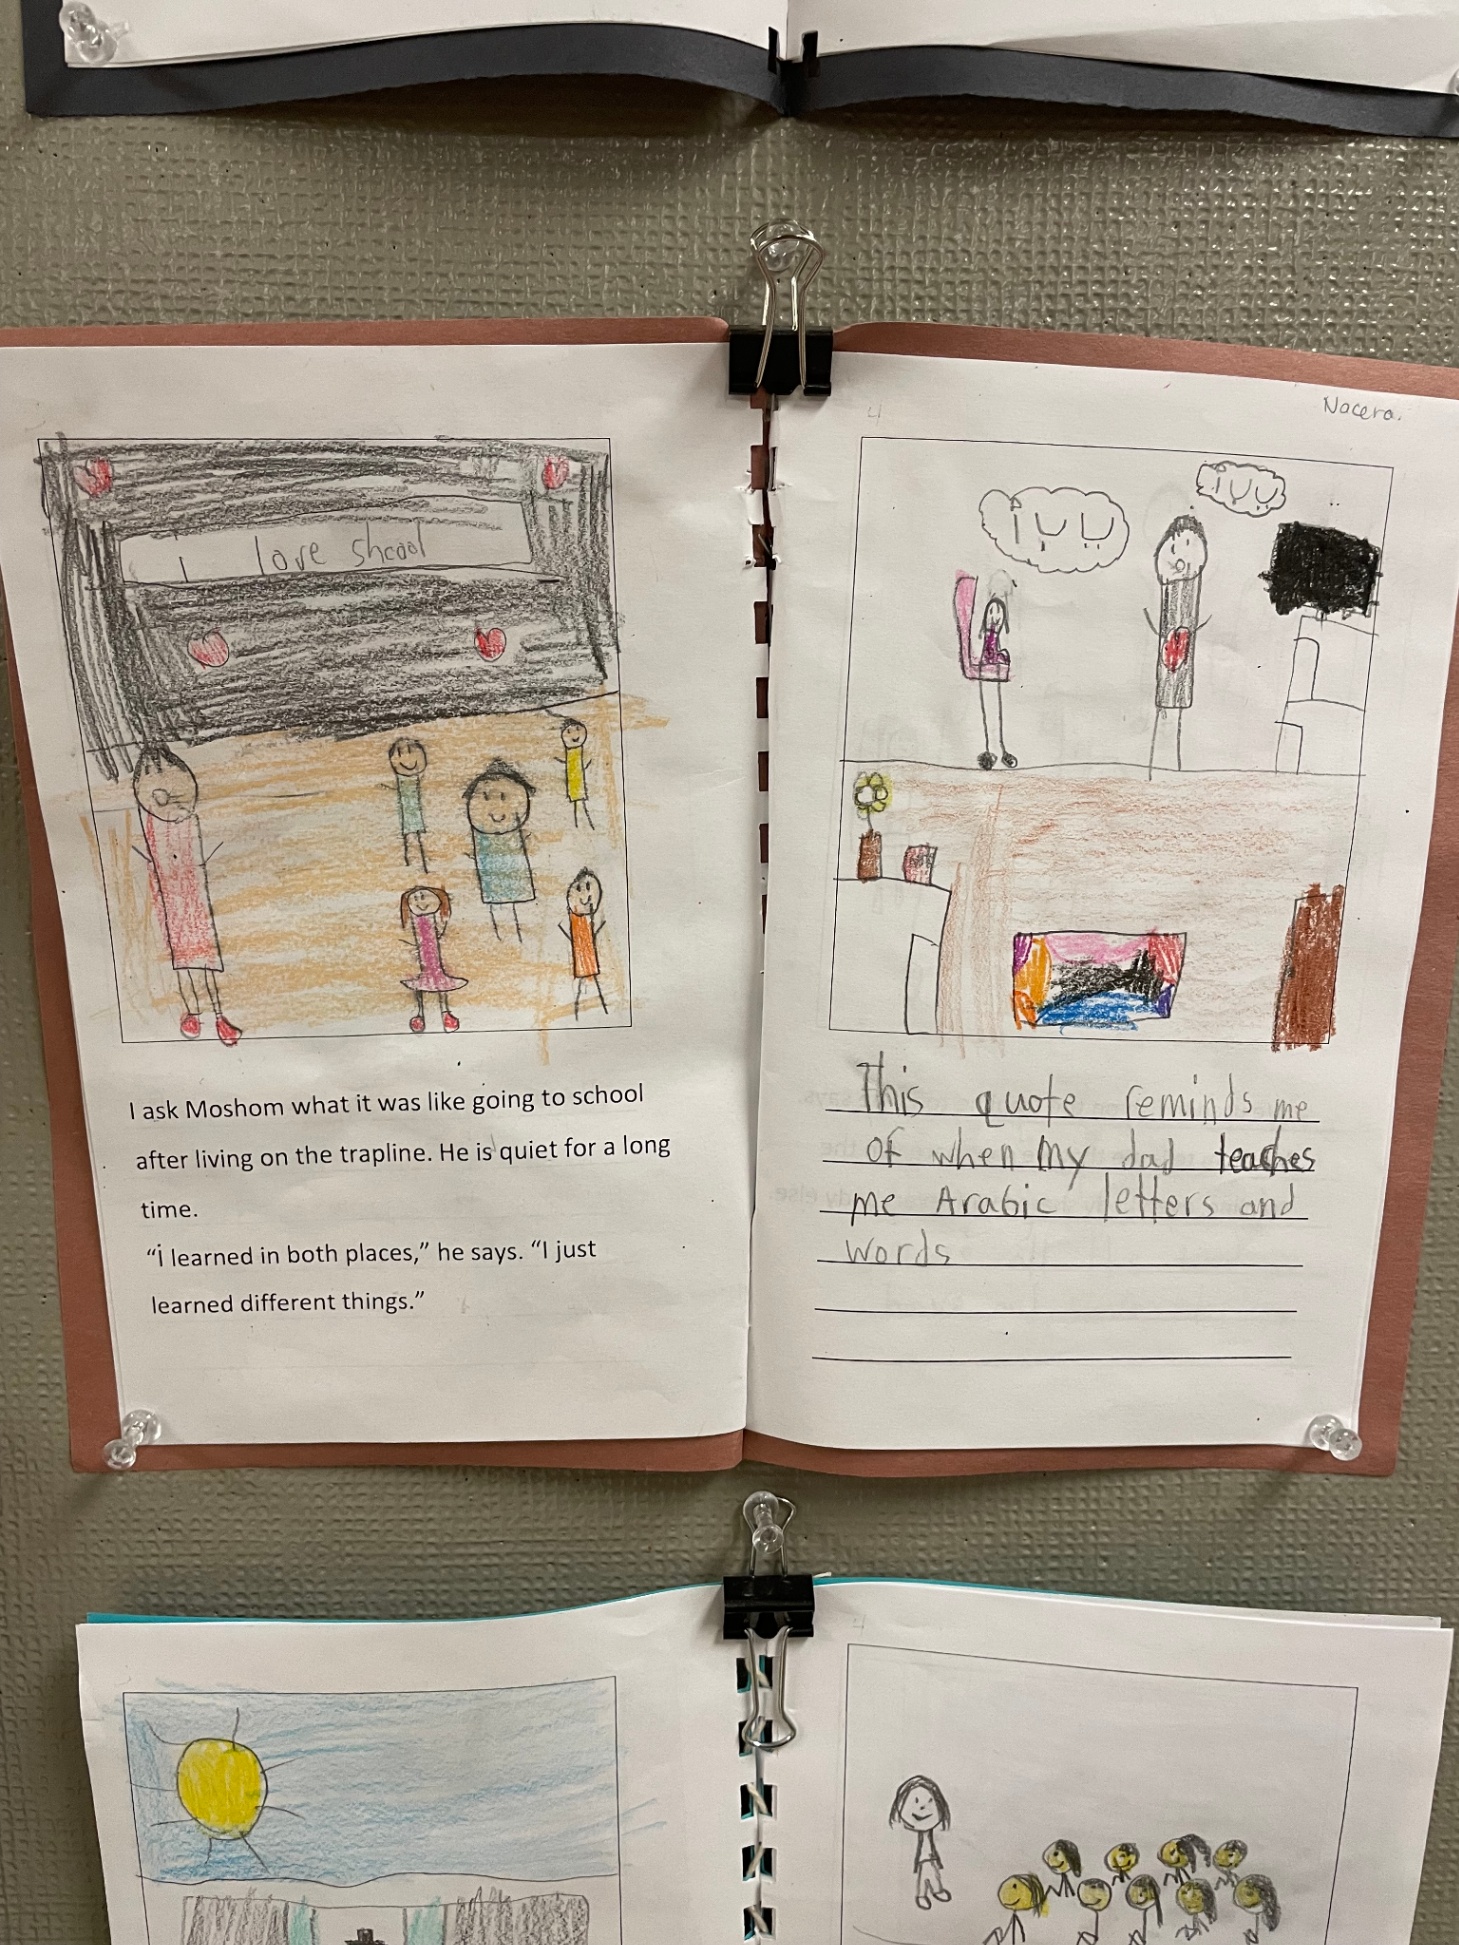 4
Nacera.
i love shcool
ا ب ت
ا ب ت
I ask Moshom what it was like going to school
after living on the trapline. He is quiet for a long
time.
“I learned in both places,” he says. “I just
learned different things.”
This quote reminds me
of when my dad teaches
me Arabic letters and
words
4